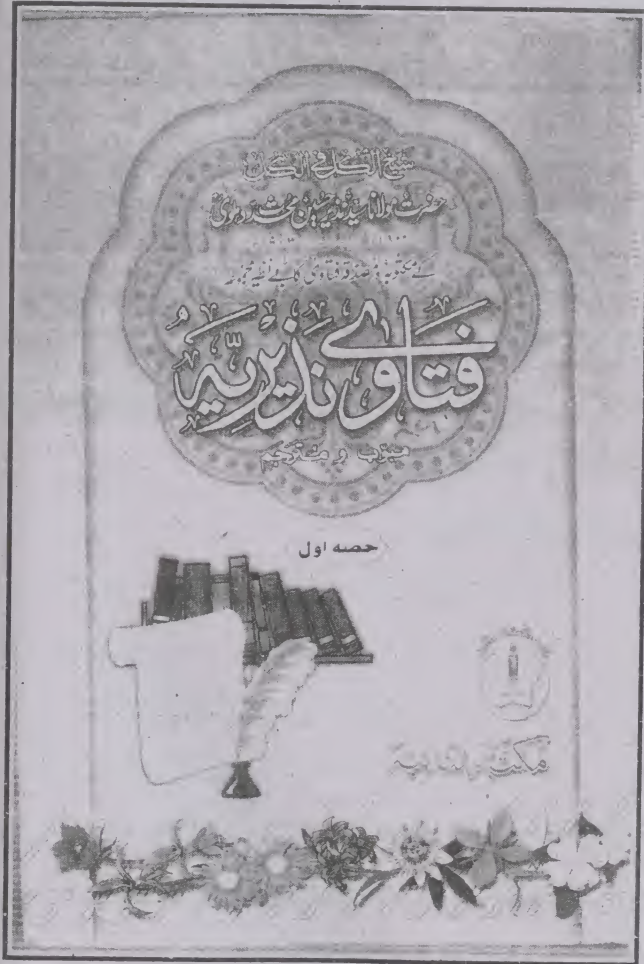 شیخ الکل فی الکل
حضرت مولانا سید نذیر حسین محدث دہلوی
کے مکتوبہ و مصدقہ فتاوی کا بے نظیر مجموعہ
فتاوے نذیریہ
مبوب و مترجم
حصہ اول